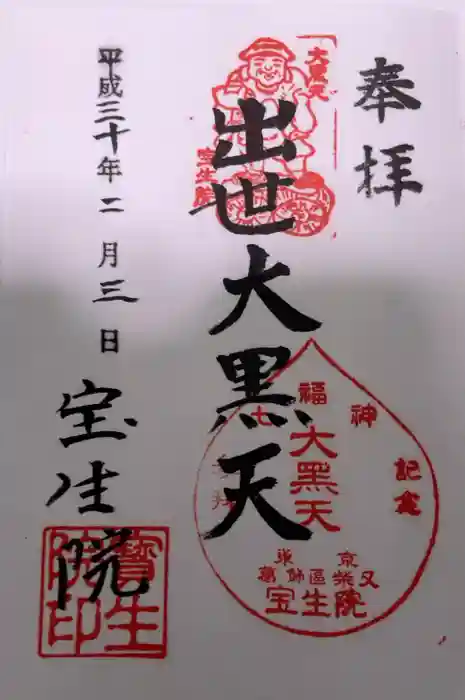 奉拝
大黒天
宝生院
出世大黒天
七福神
記念
大黑天
東京
葛飾區柴又
宝生院
平成三十年二月三日
宝生院
寶生院印